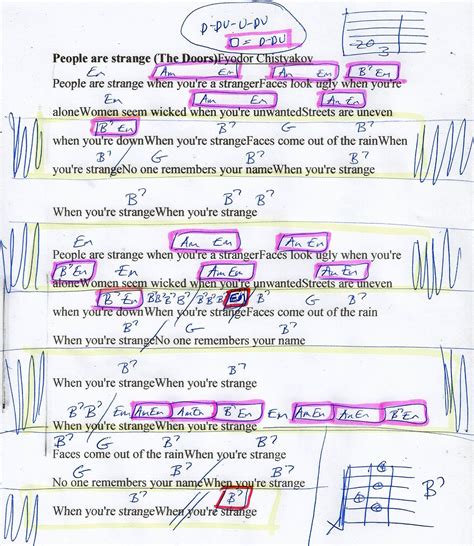 D-DU-U-DU
= D-DU
203
People are strange (The Doors)Fyodor Chistyakov
Em Am Em Am Em B7 Em
People are strange when you're a strangerFaces look ugly when you're
Em Am Em Am Em
aloneWomen seem wicked when you're unwantedStreets are uneven
B7 Em B7 G B7
when you're downWhen you're strangeFaces come out of the rainWhen
B7 G B7
you're strangeNo one remembers your nameWhen you're strange
B7 B7
When you're strangeWhen you're strange
Em Am Em Am Em
People are strange when you're a strangerFaces look ugly when you're
B7 Em Em Am Em Am Em
aloneWomen seem wicked when you're unwantedStreets are uneven
B7 Em B7 B7 B7 B7 B7 B7 B7 Em B7 G B7
when you're downWhen you're strangeFaces come out of the rain
B7 G
When you're strangeNo one remembers your name
B7 B7
When you're strangeWhen you're strange
B7 B7 Em Am Em Am Em B7 Em Em Am Em Am Em B7 Em
When you're strangeWhen you're strange
B7 G B7
Faces come out of the rainWhen you're strange
G B7
No one remembers your nameWhen you're strange
B7
B7 B7
When you're strangeWhen you're strange